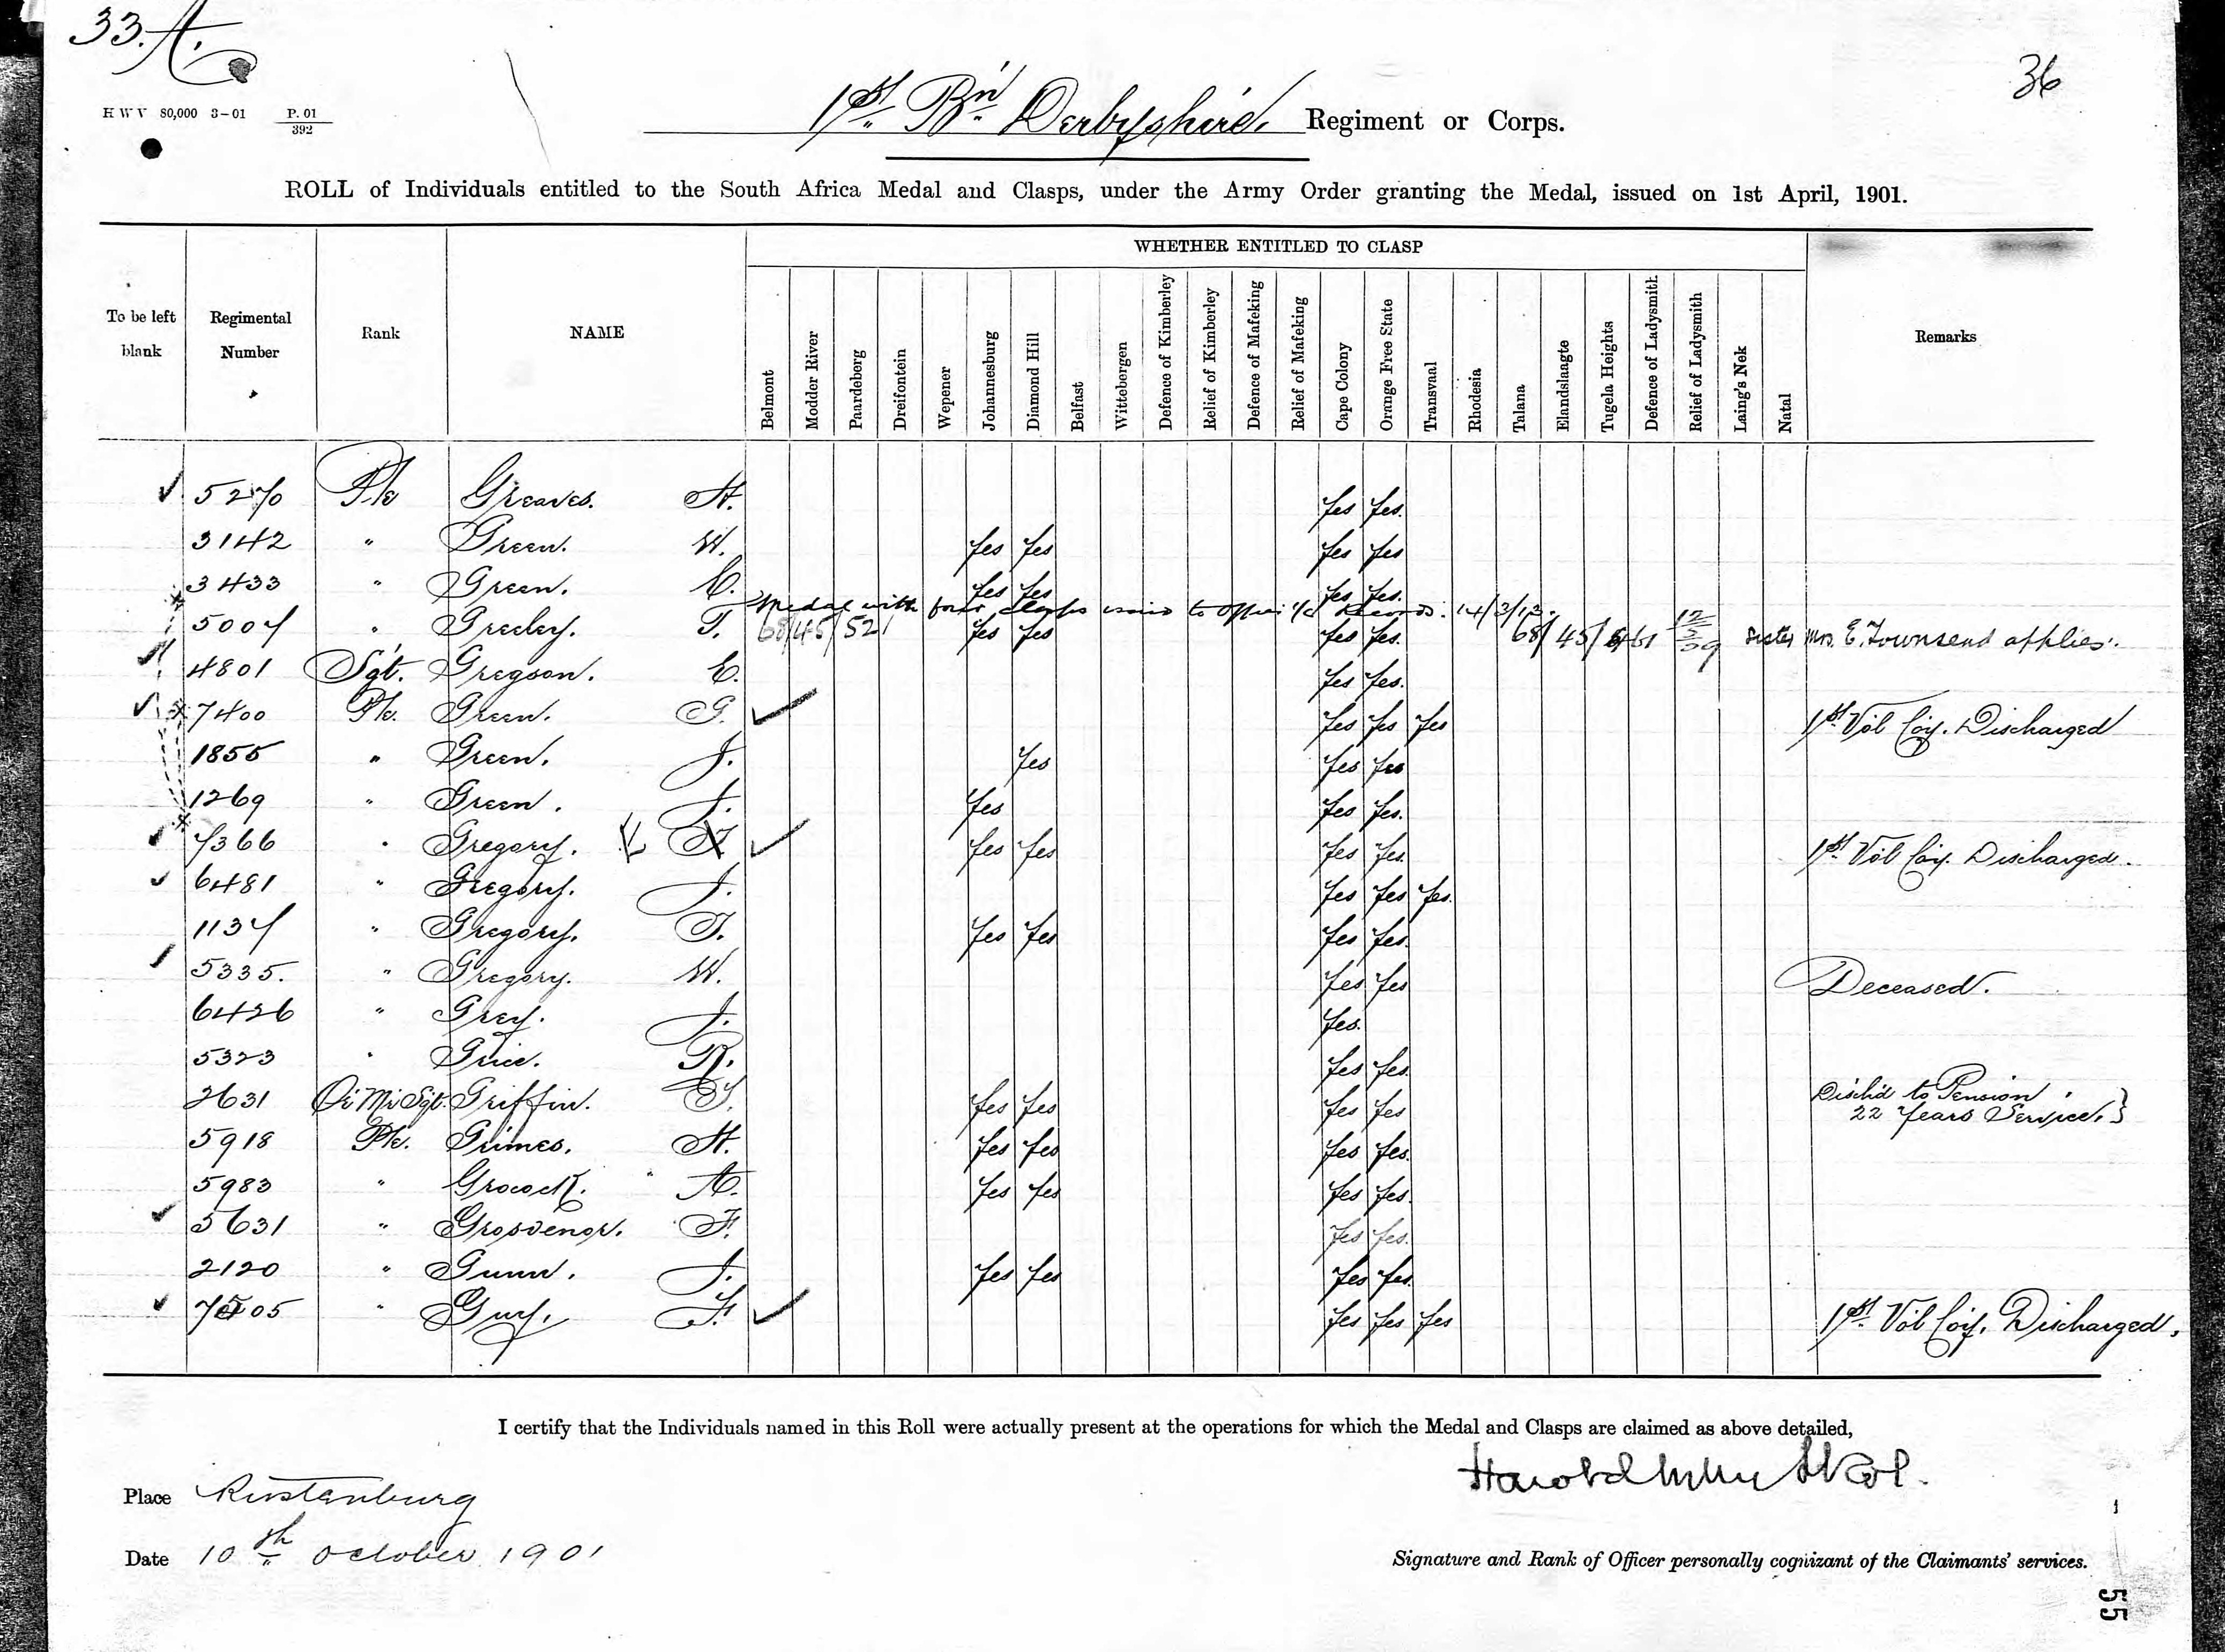 33.A.
36
H W V 80,000 3-01 P. 01 / 392
1st Bn Derbyshire. Regiment or Corps.
ROLL of Individuals entitled to the South Africa Medal and Clasps, under the Army Order granting the Medal, issued on 1st April, 1901.
To be left blank Regimental Number Rank NAME WHETHER ENTITLED TO CLASP Remarks
Belmont Modder River Paardeberg Dreifontein Wepener Johannesburg Diamond Hill Belfast Wittebergen Defence of Kimberley Relief of Kimberley Defence of Mafeking Relief of Mafeking Cape Colony Orange Free State Transvaal Rhodesia Talana Elandslaagte Tugela Heights Defence of Ladysmith Relief of Ladysmith Laing's Nek Natal
5270 Pte Greaves. H. Yes Yes.
3142 " Green. W. Yes Yes Yes Yes
3433 " Green. C. Yes Yes Yes Yes.
Medal with four clasps to i/c Records. 14/3/13.
5007 " Greeley. T. 68/45/521 Yes Yes Yes Yes. 68/45/ 12/5/39 Sister Mrs. E. Townsend applies.
4801 Sgt. Gregson. E. Yes Yes.
7400 Pte. Green. G. Yes Yes Yes 1st Vol Coy. Discharged
1855 " Green. J. Yes Yes Yes
1269 " Green. J. Yes Yes Yes.
7366 " Gregory. Yes Yes Yes Yes. 1st Vol Coy. Discharged.
6481 " Gregory. J. Yes Yes Yes.
1137 " Gregory. T. Yes Yes Yes Yes.
5335. " Gregory. W. Yes Yes Deceased.
6426 " Grey. J. Yes.
5323 " Grice. R. Yes Yes.
2631 Qr Mr Sgt. Griffin. T. Yes Yes Yes Yes Disch'd to Pension
22 Years Service. }
5918 Pte. Grimes. H. Yes Yes Yes Yes.
5983 " Grocock. A. Yes Yes Yes Yes.
5631 " Grosvenor. F. Yes Yes.
2120 " Gunn. J. Yes Yes Yes Yes.
7505 " Guy. F. Yes Yes Yes 1st Vol Coy. Discharged.
I certify that the Individuals named in this Roll were actually present at the operations for which the Medal and Clasps are claimed as above detailed,
Place Rustenburg
Harold
Date 10th October 1901
Signature and Rank of Officer personally cognizant of the Claimants' services.
55